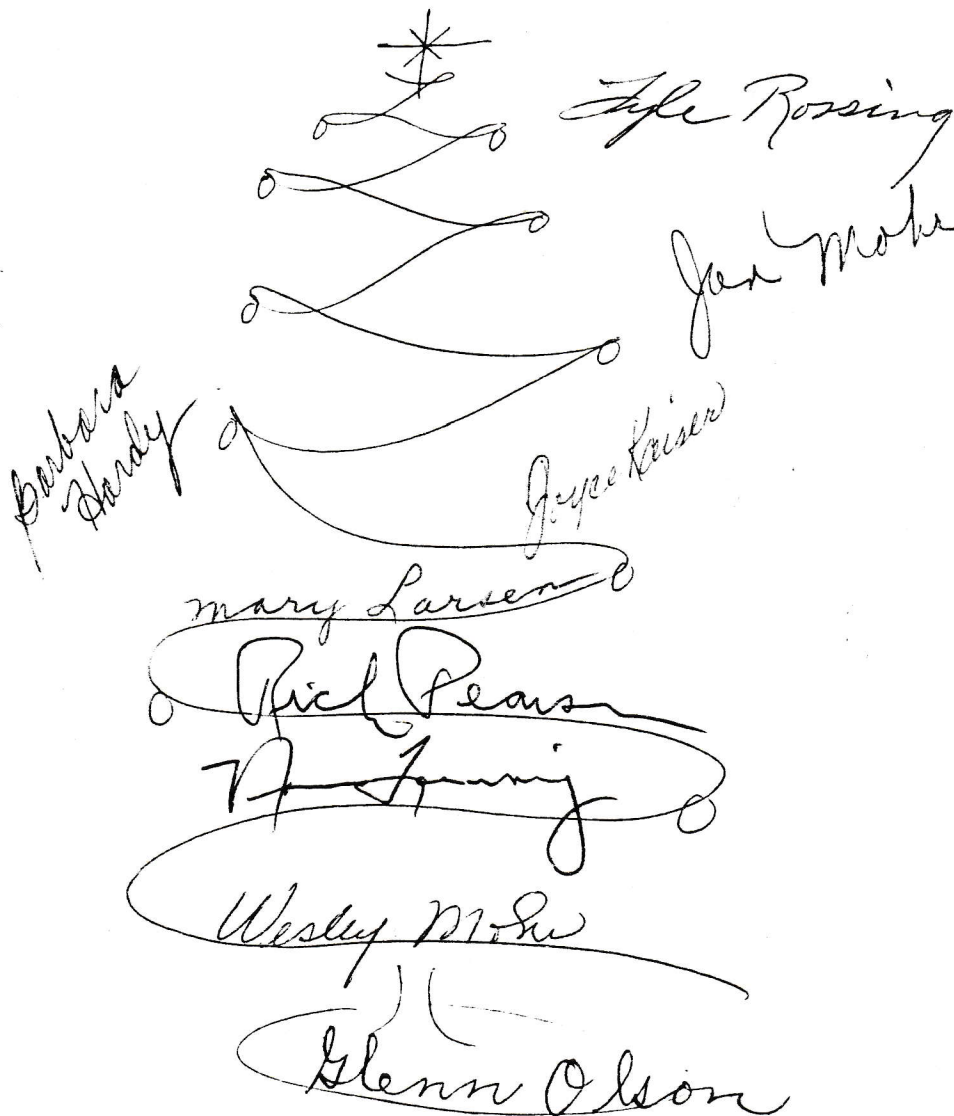 Lyle Rossing
Jan Mohr
Barbara
Hardy
Joyce Kaiser
Mary Larsen
Rich Pearson
Wesley Mohr
Glenn Olson